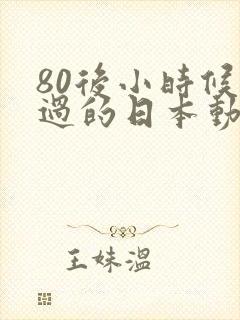 80後小時候
過的日本動
王妹溫